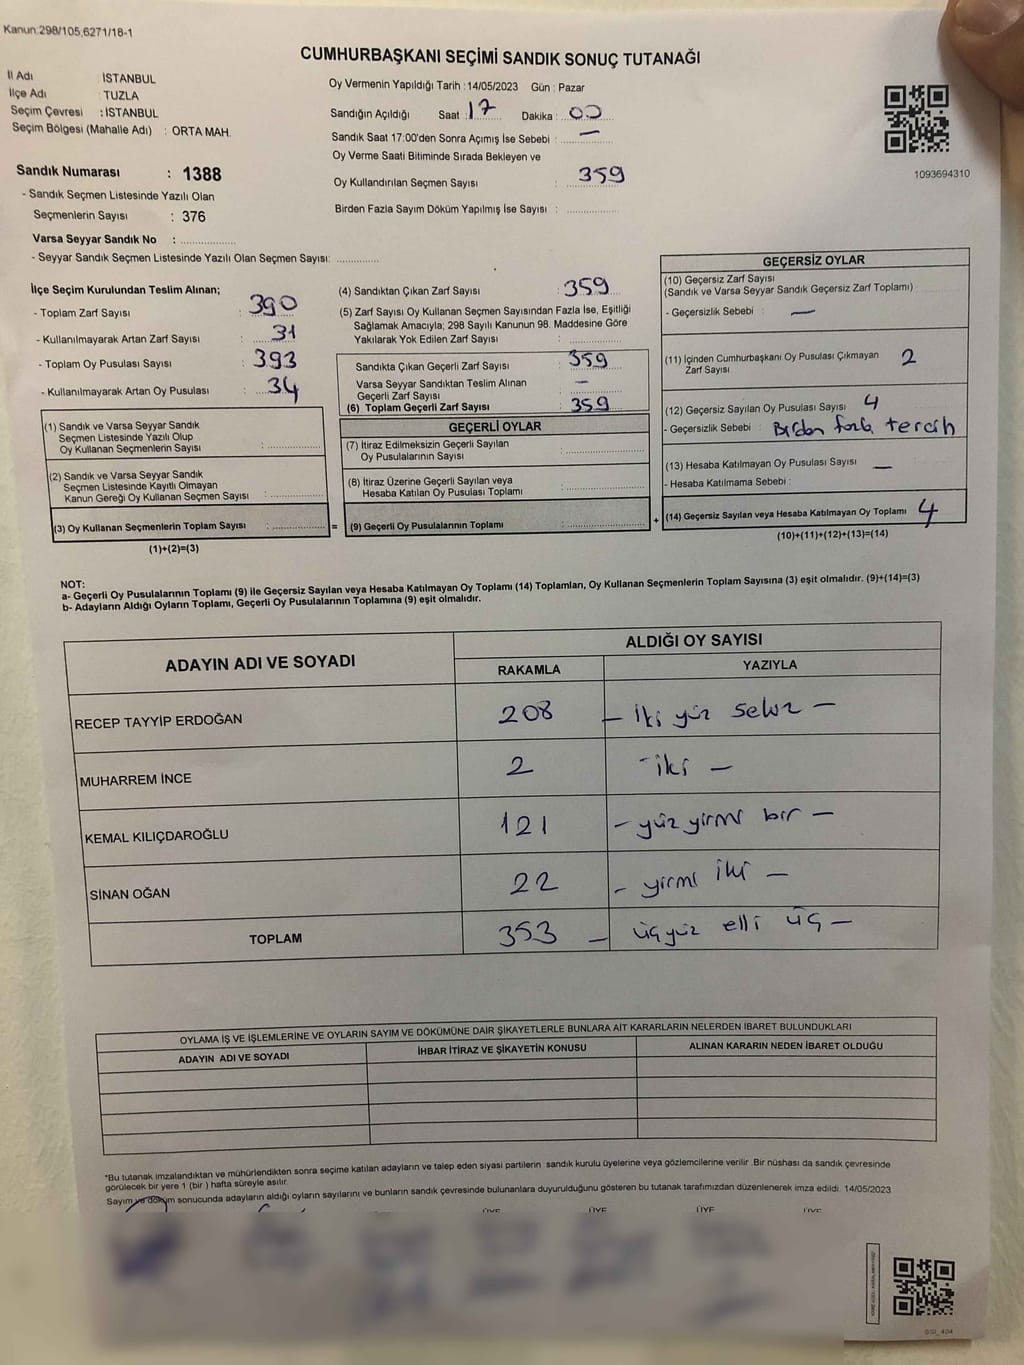 Kanun:298/105,6271/18-1
CUMHURBAŞKANI SEÇİMİ SANDIK SONUÇ TUTANAĞI
İl Adı : İSTANBUL
İlçe Adı : TUZLA
Seçim Çevresi : İSTANBUL
Seçim Bölgesi (Mahalle Adı) : ORTA MAH.
Oy Vermenin Yapıldığı Tarih : 14/05/2023 Gün : Pazar
Sandığın Açıldığı Saat : 17 Dakika : 00
Sandık Saat 17:00'den Sonra Açımış İse Sebebi : —
Oy Verme Saati Bitiminde Sırada Bekleyen ve
Oy Kullandırılan Seçmen Sayısı : 359
Birden Fazla Sayım Döküm Yapılmış İse Sayısı :
1093694310
Sandık Numarası : 1388
- Sandık Seçmen Listesinde Yazılı Olan
Seçmenlerin Sayısı : 376
Varsa Seyyar Sandık No :
- Seyyar Sandık Seçmen Listesinde Yazılı Olan Seçmen Sayısı:
İlçe Seçim Kurulundan Teslim Alınan;
- Toplam Zarf Sayısı : 390
- Kullanılmayarak Artan Zarf Sayısı : 31
- Toplam Oy Pusulası Sayısı : 393
- Kullanılmayarak Artan Oy Pusulası : 34
(1) Sandık ve Varsa Seyyar Sandık
Seçmen Listesinde Yazılı Olup
Oy Kullanan Seçmenlerin Sayısı :
(2) Sandık ve Varsa Seyyar Sandık
Seçmen Listesinde Kayıtlı Olmayan
Kanun Gereği Oy Kullanan Seçmen Sayısı :
(3) Oy Kullanan Seçmenlerin Toplam Sayısı : =
(1)+(2)=(3)
(4) Sandıktan Çıkan Zarf Sayısı : 359
(5) Zarf Sayısı Oy Kullanan Seçmen Sayısından Fazla İse, Eşitliği
Sağlamak Amacıyla; 298 Sayılı Kanunun 98. Maddesine Göre
Yakılarak Yok Edilen Zarf Sayısı :
Sandıkta Çıkan Geçerli Zarf Sayısı : 359
Varsa Seyyar Sandıktan Teslim Alınan
Geçerli Zarf Sayısı : —
(6) Toplam Geçerli Zarf Sayısı : 359
GEÇERLİ OYLAR
(7) İtiraz Edilmeksizin Geçerli Sayılan
Oy Pusulalarının Sayısı :
(8) İtiraz Üzerine Geçerli Sayılan veya
Hesaba Katılan Oy Pusulası Toplamı :
(9) Geçerli Oy Pusulalarının Toplamı : +
GEÇERSİZ OYLAR
(10) Geçersiz Zarf Sayısı
(Sandık ve Varsa Seyyar Sandık Geçersiz Zarf Toplamı)
- Geçersizlik Sebebi : —
(11) İçinden Cumhurbaşkanı Oy Pusulası Çıkmayan
Zarf Sayısı 2
(12) Geçersiz Sayılan Oy Pusulası Sayısı : 4
- Geçersizlik Sebebi : Birden fazla tercih
(13) Hesaba Katılmayan Oy Pusulası Sayısı : —
- Hesaba Katılmama Sebebi :
(14) Geçersiz Sayılan veya Hesaba Katılmayan Oy Toplamı 4
(10)+(11)+(12)+(13)=(14)
NOT:
a- Geçerli Oy Pusulalarının Toplamı (9) ile Geçersiz Sayılan veya Hesaba Katılmayan Oy Toplamı (14) Toplamları, Oy Kullanan Seçmenlerin Toplam Sayısına (3) eşit olmalıdır. (9)+(14)=(3)
b- Adayların Aldığı Oyların Toplamı, Geçerli Oy Pusulalarının Toplamına (9) eşit olmalıdır.
ADAYIN ADI VE SOYADI
ALDIĞI OY SAYISI
RAKAMLA YAZIYLA
RECEP TAYYİP ERDOĞAN 208 – iki yüz sekiz –
MUHARREM İNCE 2 – iki –
KEMAL KILIÇDAROĞLU 121 – yüz yirmi bir –
SİNAN OĞAN 22 – yirmi iki –
TOPLAM 353 – üçyüz elli üç –
OYLAMA İŞ VE İŞLEMLERİNE VE OYLARIN SAYIM VE DÖKÜMÜNE DAİR ŞİKAYETLERLE BUNLARA AİT KARARLARIN NELERDEN İBARET BULUNDUKLARI
ADAYIN ADI VE SOYADI İHBAR İTİRAZ VE ŞİKAYETİN KONUSU ALINAN KARARIN NEDEN İBARET OLDUĞU
*Bu tutanak imzalandıktan ve mühürlendikten sonra seçime katılan adayların ve talep eden siyasi partilerin sandık kurulu üyelerine veya gözlemcilerine verilir. Bir nüshası da sandık çevresinde
görülecek bir yere 1 (bir ) hafta süreyle asılır.
Sayım ve döküm sonucunda adayların aldığı oyların sayılarını ve bunların sandık çevresinde bulunanlara duyurulduğunu gösteren bu tutanak tarafımızdan düzenlenerek imza edildi. 14/05/2023
ÜYE ÜYE ÜYE ÜYE